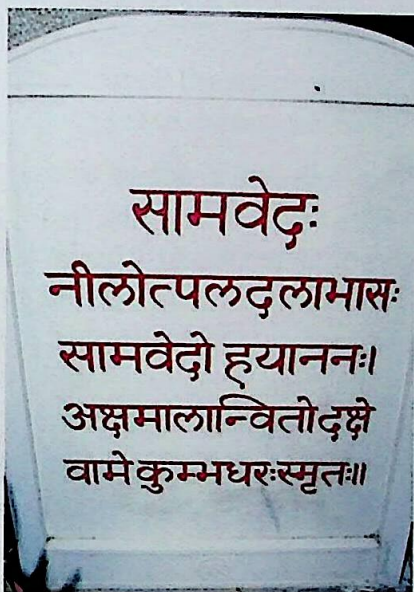 सामवेदः
नीलोत्पलदलाभासः
सामवेदो हयाननः।
अक्षमालान्वितोदक्षे
वामे कुम्भधरःस्मृतः॥